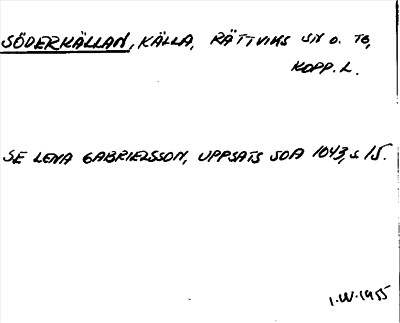 SÖDERKÄLLAN, KÄLLA, RÄTTVIKS SN O. TG,
KOPP. L.
SE LENA GABRIELSSON, UPPSATS SOA 1043, s 15.